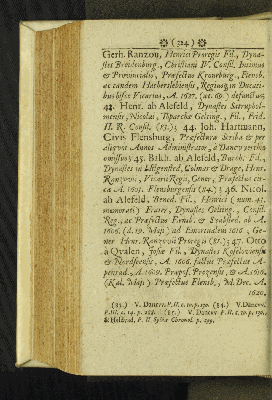 ( 324 )
Gerh. Ranzou, Henrici Proregis Fil., Dyna-
stes Breidenburg., Christiani IV. Consil. Intimus
& Provincialis, Præfectus Kronburg., Flensb.
ac tandem Haderslebiensis, Regiusq; in Ducati-
bus hisce Vicarius, A. 1627. (æt. 69.) defunctus;
43. Henr. ab Alefeld, Dynastes Satrupbol-
mensis, Nicolai, Toparchæ Gelting., Fil., Frid.
II. R. Consil. (83.); 44. Joh. Hartmann,
Civis Flensburg., Præfecturæ Scriba & per
aliquot Annos Administrator, à Dancv. territus
omissus; 45. Balth. ab Alefeld, Burch. Fil.,
Dynastes in Heiligenstedt, Colmar & Drage, Henr.
Ranzovii, Vicarii Regii, Gener, Præfectus cir-
ca A. 1605. Flensburgensis (84.); 46. Nicol.
ab Alefeld, Bened. Fil., Henrici (num. 43.
memorati) Frater, Dynastes Gelting., Consil.
Reg., ac Præfectus Flensb., & Stadberg. ab A.
1606. (d. 19. Maji) ad Emortualem 1616., Ge-
ner Henr. Ranzovii Proregis (85.); 47. Otto
a Qvalen, Josiæ Fil., Dynastes Koseloviensis
& Nordseensis, A. 1606. factus Præfectus A-
penrad., A. 1609. Præpos. Preezensis, & A. 1616.
(Kal. Maji) Præfectus Flensb., M. Dec. A.
1620.
(83.) V. Dancv. P. II. c. 10. p. 130. (84.) V. Dancv.
P. III. c. 14. p. 288. (85.) V. Dancv. P. II. c. 10. p. 130.
& Heldvad. P. II. Sylvæ Chronol. p. 299.